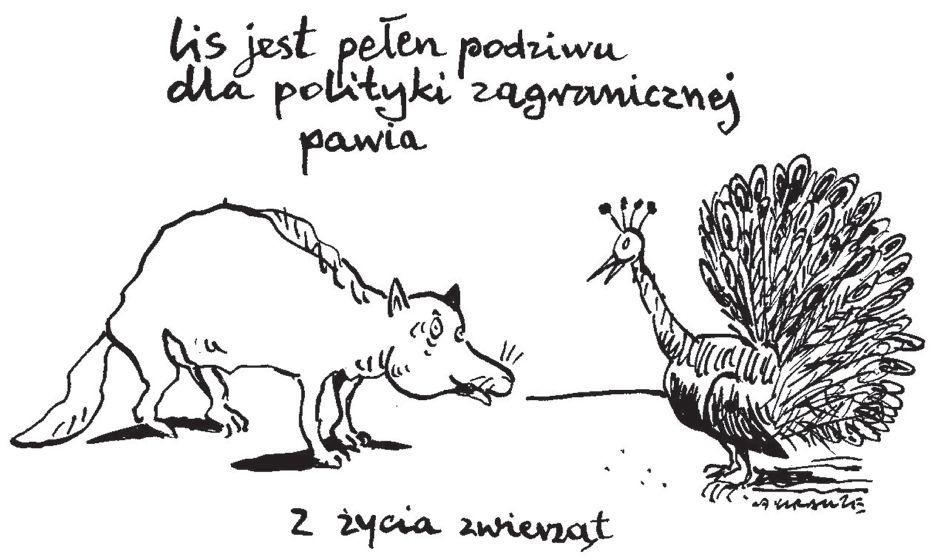 lis jest pełen podziwu
dla polityki zagranicznej
pawia
A KRAUZE
Z życia zwierząt